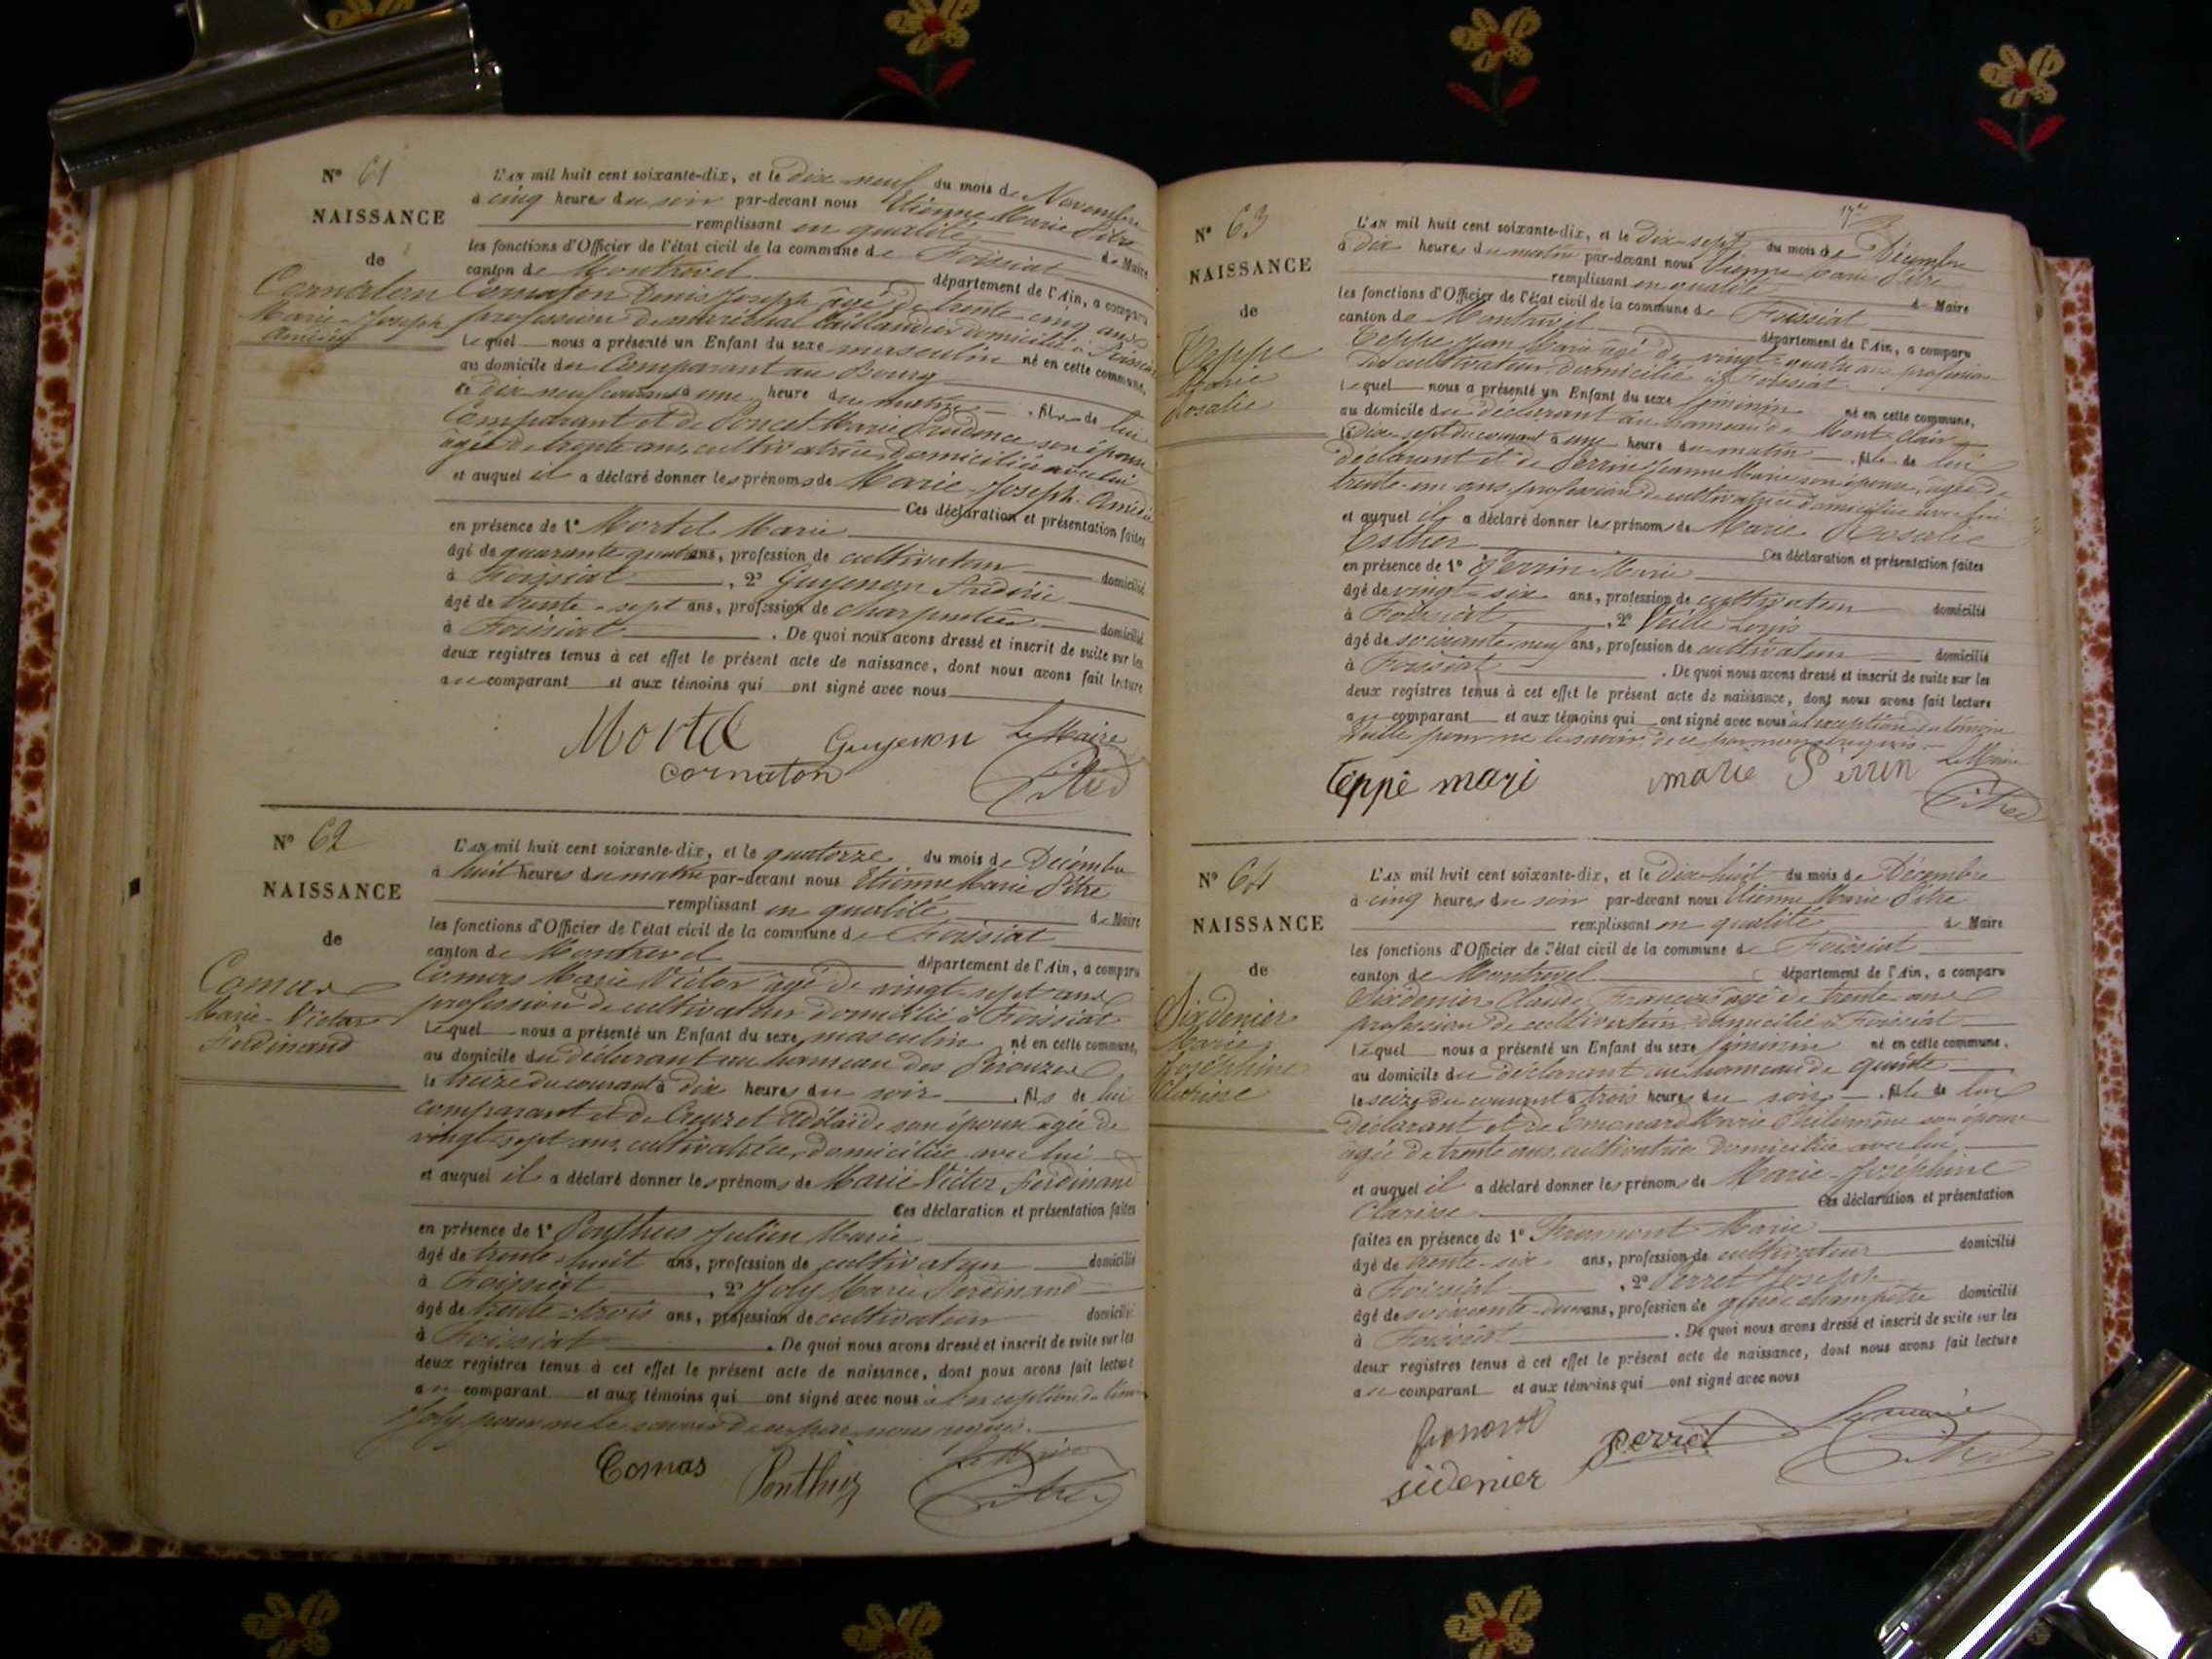 N° 61
NAISSANCE
de
Cornaton
Marie-Joseph
Amédée
L'AN mil huit cent soixante-dix, et le Dix neuf du mois de Novembre
à cinq heures du soir par-devant nous Etienne Marie Pitre
remplissant en qualité de Maire
les fonctions d'Officier de l'état civil de la commune de Foissiat
canton de Montrevel département de l'Ain, a comparu
Cornaton Denis Joseph âgé de trente cinq ans
profession de maréchal taillandier domicilié à Foissiat
Lequel nous a présenté un Enfant du sexe masculin né en cette commune,
au domicile du Comparant au Bourg
le dix neuf courant à une heure du matin, fils de lui
Comparant et de Poncet Marie Prudence son épouse
âgée de trente ans, cultivatrice, domiciliée avec lui
et auquel il a déclaré donner les prénoms de Marie-Joseph-Amédée
Ces déclaration et présentation faites
en présence de 1° Mortel Marie
âgé de quarante quatre ans, profession de cultivateur domicilié
à Foissiat, 2° Guyenon Frédéric
âgé de trente-sept ans, profession de charpentier domicilié
à Foissiat. De quoi nous avons dressé et inscrit de suite sur les
deux registres tenus à cet effet le présent acte de naissance, dont nous avons fait lecture
au comparant et aux témoins qui ont signé avec nous
Mortel Guyenon Le Maire
cornaton Pitre
N° 62
NAISSANCE
de
Comas
Marie-Victor
Ferdinand
L'AN mil huit cent soixante-dix, et le quatorze du mois de Décembre
à huit heures du matin par-devant nous Etienne Marie Pitre
remplissant en qualité de Maire
les fonctions d'Officier de l'état civil de la commune de Foissiat
canton de Montrevel département de l'Ain, a comparu
Comas Marie Victor âgé de vingt-sept ans
profession de cultivateur domicilié à Foissiat
Lequel nous a présenté un Enfant du sexe masculin né en cette commune,
au domicile du déclarant au hameau des
le treize du courant à dix heures du soir, fils de lui
comparant et de Creuzet Adélaïde son épouse âgée de
vingt-sept ans, cultivatrice, domiciliée avec lui
et auquel il a déclaré donner les prénoms de Marie Victor Ferdinand
Ces déclaration et présentation faites
en présence de 1° Ponthus Julien Marie
âgé de trente-huit ans, profession de cultivateur domicilié
à Foissiat, 2° Joly Marie Ferdinand
âgé de trente-trois ans, profession de cultivateur domicilié
à Foissiat. De quoi nous avons dressé et inscrit de suite sur les
deux registres tenus à cet effet le présent acte de naissance, dont nous avons fait lecture
au comparant et aux témoins qui ont signé avec nous à l'exception du témoin
Joly pour ne le savoir de ce par nous requis.
Comas Ponthus Le Maire
Pitre
N° 63
NAISSANCE
de
Teppe
Marie
Rosalie
L'AN mil huit cent soixante-dix, et le Dix-sept du mois de Décembre
à Dix heures du matin par-devant nous Etienne Marie Pitre
remplissant en qualité de Maire
les fonctions d'Officier de l'état civil de la commune de Foissiat
canton de Montrevel département de l'Ain, a comparu
Teppe Jean Marie âgé de vingt-quatre ans profession
de cultivateur, domicilié à Foissiat
Lequel nous a présenté un Enfant du sexe féminin né en cette commune,
au domicile du déclarant au hameau de Mont-clair
le Dix-sept du courant à une heure du matin, fille de lui
déclarant et de Perrin Jeanne Marie son épouse, âgée de
trente-un ans, profession de cultivatrice domiciliée avec lui
et auquel il a déclaré donner les prénoms de Marie Rosalie
Esther Ces déclaration et présentation faites
en présence de 1° Perrin Marie
âgé de vingt-six ans, profession de cultivateur domicilié
à Foissiat, 2° Louis
âgé de soixante neuf ans, profession de cultivateur domicilié
à Foissiat. De quoi nous avons dressé et inscrit de suite sur les
deux registres tenus à cet effet le présent acte de naissance, dont nous avons fait lecture
au comparant et aux témoins qui ont signé avec nous à l'exception du témoin
pour ne le savoir de ce par nous requis.
teppe mari marie Perrin Le Maire
Pitre
N° 64
NAISSANCE
de
Sixdenier
Marie
Joséphine
Clarisse
L'AN mil huit cent soixante-dix, et le Dix-huit du mois de Décembre
à cinq heures du soir par-devant nous Etienne Marie Pitre
remplissant en qualité de Maire
les fonctions d'Officier de l'état civil de la commune de Foissiat
canton de Montrevel département de l'Ain, a comparu
Sixdenier Claude François âgé de trente ans
profession de cultivateur domicilié à Foissiat
Lequel nous a présenté un Enfant du sexe féminin né en cette commune,
au domicile du déclarant au hameau de
le seize du courant à trois heures du soir, fille de lui
Déclarant et de Marie Philomène son épouse
âgée de trente ans, cultivatrice domiciliée avec lui
et auquel il a déclaré donner les prénoms de Marie-Joséphine
Clarisse Ces déclaration et présentation
faites en présence de 1° Fromont Marie
âgé de trente-six ans, profession de cultivateur domicilié
à Foissiat, 2° Perret Joseph
âgé de soixante-deux ans, profession de garde champêtre domicilié
à Foissiat. De quoi nous avons dressé et inscrit de suite sur les
deux registres tenus à cet effet le présent acte de naissance, dont nous avons fait lecture
au comparant et aux témoins qui ont signé avec nous
perret Le maire
sidenier Pitre